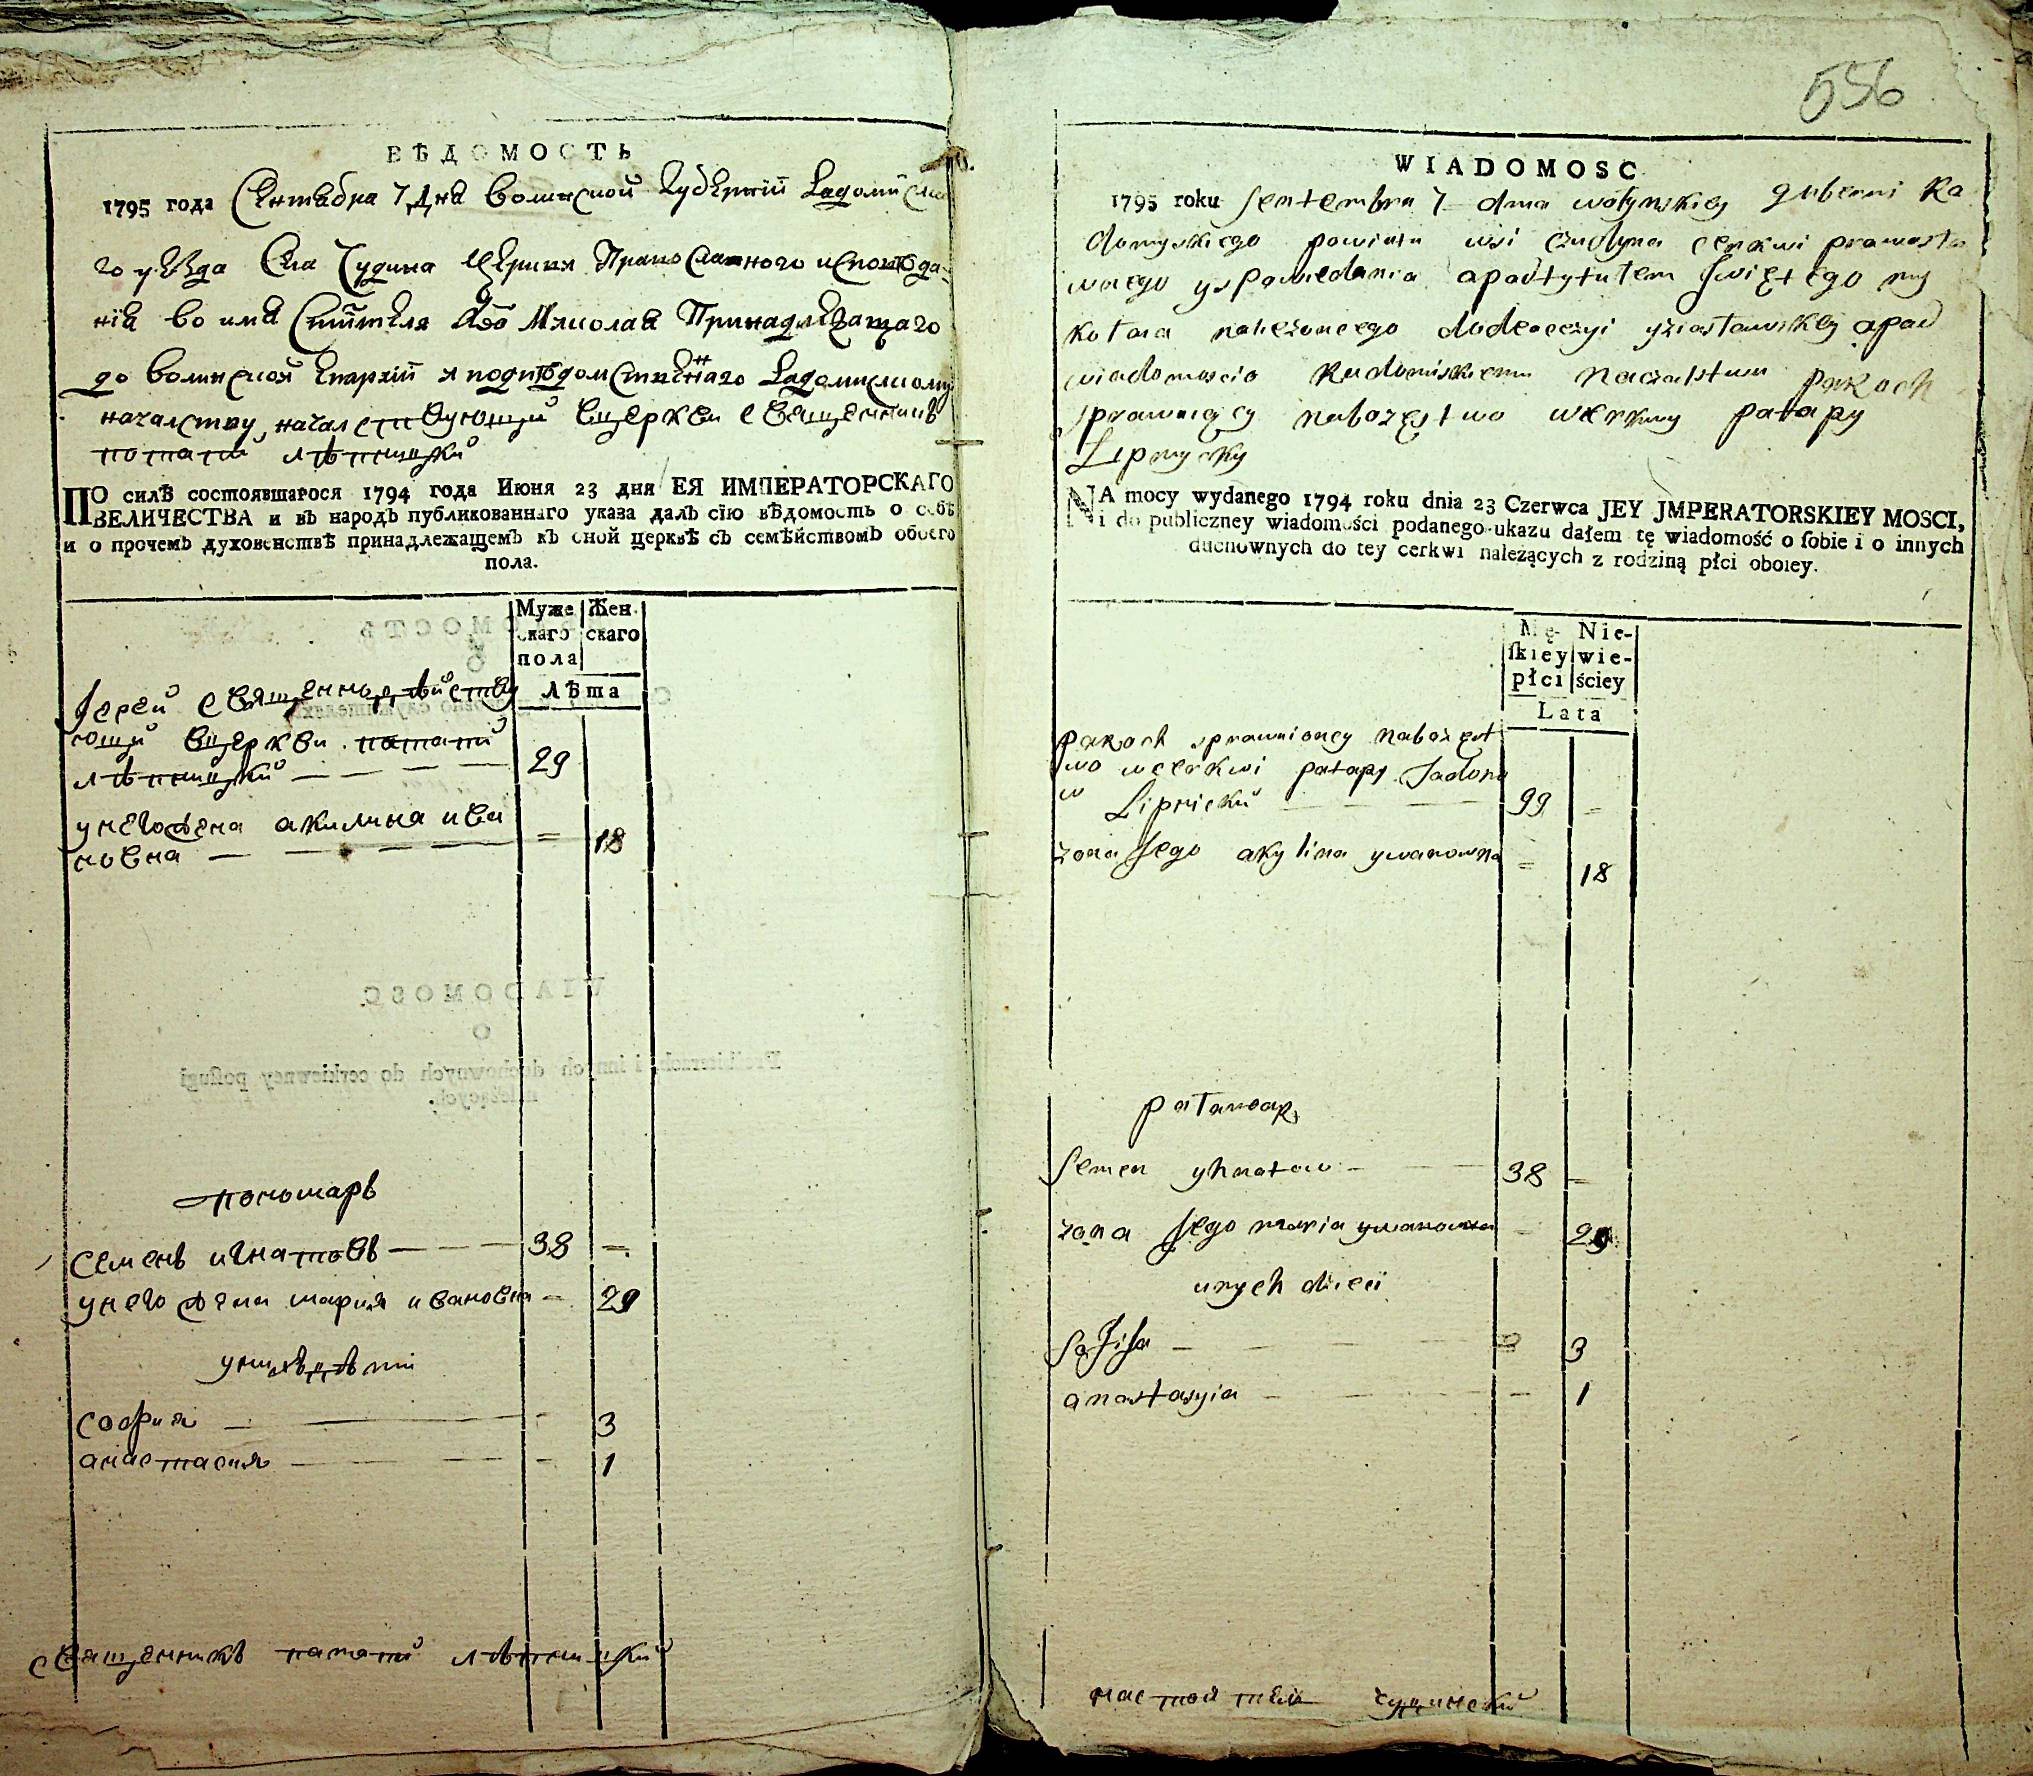 ВѢДОМОСТЬ
1795 года Сентабра 7 дна волинской Губернїй Радомїслс
го уѣзда Сла Чудина Церкви Православного исповѣда-
нїа во има Стїтела Хво Миколаа Принадлежащаго
до волинской Епархїй и подвѣдомственнаго Радомислкому
началству, началствующий вцеркви священникъ
потапи лѣпницкий
ПО силѣ состоявшагося 1794 года Июня 23 дня ЕЯ ИМПЕРАТОРСКАГО
ВЕЛИЧЕСТВА и въ народъ публикованнаго указа далъ сїю вѣдомость о себѣ
и о прочемъ духовенствѣ принадлежащемъ къ оной церквѣ съ семѣйствомъ обоего
пола.
Муже Жен
скаго скаго
пола
Лѣта
Іерей священнодѣйству
ющи вцеркви патапи
лѣпницкий 29
унего жена акилина ива
новна = 18
пономарь
семенъ игнатовъ 38 =
унего жена мария ивановна 29
унихъ дѣти
софия - 3
анастасия - 1
священникъ патапи лѣпницкий
556
WIADOMOSC
1795 roku Sentembra 7 dnia wołynskiey guberni Ra
domyskiego powiatu wsi czudyna cerkwi prawosła
wnego yspowiedania apodtytułem Swiętego my
kołaia należoncego dodeoecezyi yziasławskiey apod
wiadomoscio Radomiskiemu naczalstwu paroch
sprawuiący nabozęstwo wcerkwy patapy
Lipnycky
NA mocy wydanego 1794 roku dnia 23 Czerwca JEY JMPERATORSKIEY MOSCI,
i do publiczney wiadomości podanego ukazu dałem tę wiadomość o ſobie i o innych
duchownych do tey cerkwi należących z rodziną płci oboiey.
Mę- Nie-
ſkiey wie-
płci ściey
Lata
paroch sprawuioncy nabozęst
wo wcerkwi patapy
Lipnicki 99 =
zona Jego akylina ywanowna = 18
patamar
Semen yhnatow 38 -
zona Jego maria ywanowna - 29
unych dzieci
Sofija 3
anastasyia - 1
настоятель чудинский